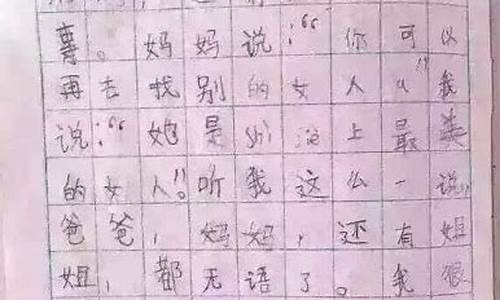 事。妈妈说:“你可以
再去找别的女人。”我
说:“她是shi 上最美
的女人”。听我这么一说,
爸爸,妈妈,还有姐
姐,都无语了。我很